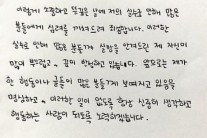 이렇게 소중하고 뜻깊은 날에 저의 실수로 인해 많은
분들에게 심려를 끼쳐드려 죄송합니다. 이러한
실수로 인해 많은 분들께 실망을 안겨드린 제 자신이
많이 부끄럽고 깊이 반성하고 있습니다. 앞으로는 제가
한 행동이나 글들이 많은 분들께 보여지고 있음을
명심하고, 이러한 일이 없도록 항상 신중히 생각하고
행동하는 사람이 되도록 노력하겠습니다.